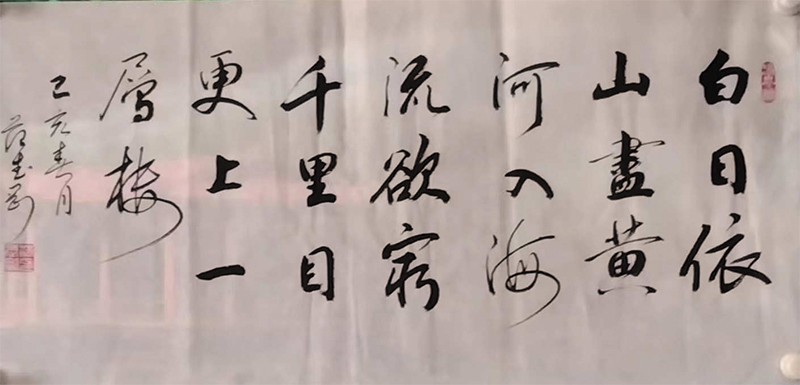 白日依
山盡黄
河入海
流欲窮
千里目
更上一
層樓
己亥春月